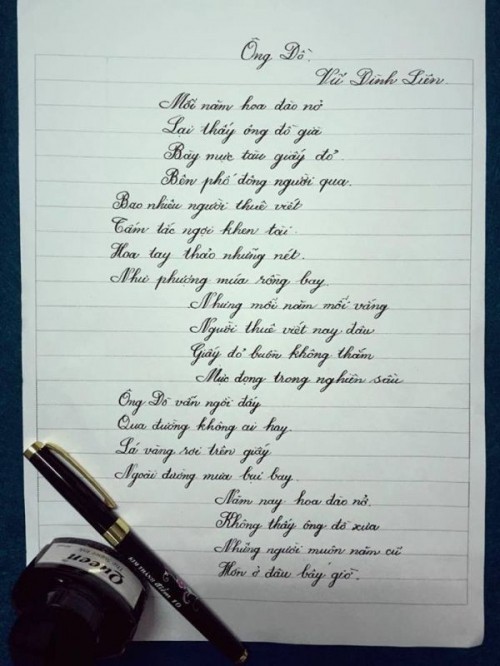 Ông Đồ.
Vũ Đình Liên.
Mỗi năm hoa đào nở
Lại thấy ông đồ già
Bày mực tàu giấy đỏ.
Bên phố đông người qua.
Bao nhiêu người thuê viết
Tấm tắc ngợi khen tài.
Hoa tay thảo những nét.
Như phượng múa rồng bay.
Nhưng mỗi năm mỗi vắng
Người thuê viết nay đâu
Giấy đỏ buồn không thắm
Mực đọng trong nghiên sầu
Ông Đồ vẫn ngồi đấy
Qua đường không ai hay.
Lá vàng rơi trên giấy
Ngoài đường mưa bụi bay.
Năm nay hoa đào nở.
Không thấy ông đồ xưa
Những người muôn năm cũ
Hồn ở đâu bây giờ.
Queen